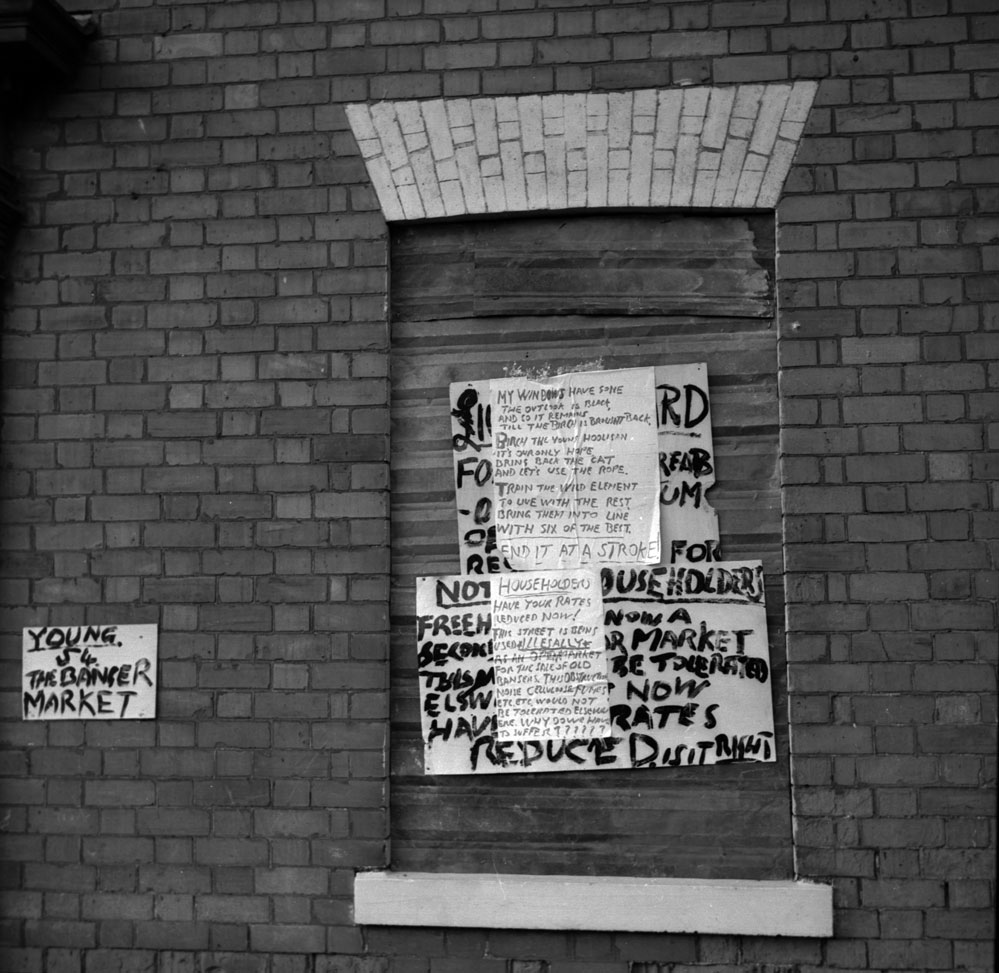 £11 RD
FO REAB
UM
FOR
RE
MY WINDOWS HAVE SOME
THE OUTLOOK IS BLACK,
AND SO IT REMAINS
TILL THE BIRCH IS BROUGHT BACK.
BIRCH THE YOUNG HOOLIGAN
IT'S OUR ONLY HOPE
BRING BACK THE CAT
AND LET'S USE THE ROPE.
TRAIN THE WILD ELEMENT
TO LIVE WITH THE REST
BRING THEM INTO LINE
WITH SIX OF THE BEST.
END IT AT A STROKE
NOT OUSEHOLDERS
FREEH NOW A
BECOM R MARKET
BE TOLERATED
ELSW NOW
HAV RATES
REDUCE D.IS IT RIGHT
HOUSEHOLDERS
HAVE YOUR RATES
REDUCED NOW!
THIS STREET IS BEING
USED ILLEGALLY
AS AN OPEN MARKET
FOR THE SALE OF OLD
BANGERS. THIS OBSTRUCTION
NOISE CELLULOSE FUMES
ETC. ETC. WOULD NOT
BE TOLERATED ELSEWH
ERE. WHY DO WE HAVE
TO SUFFER??????
YOUNG.
54
THE BANGER
MARKET